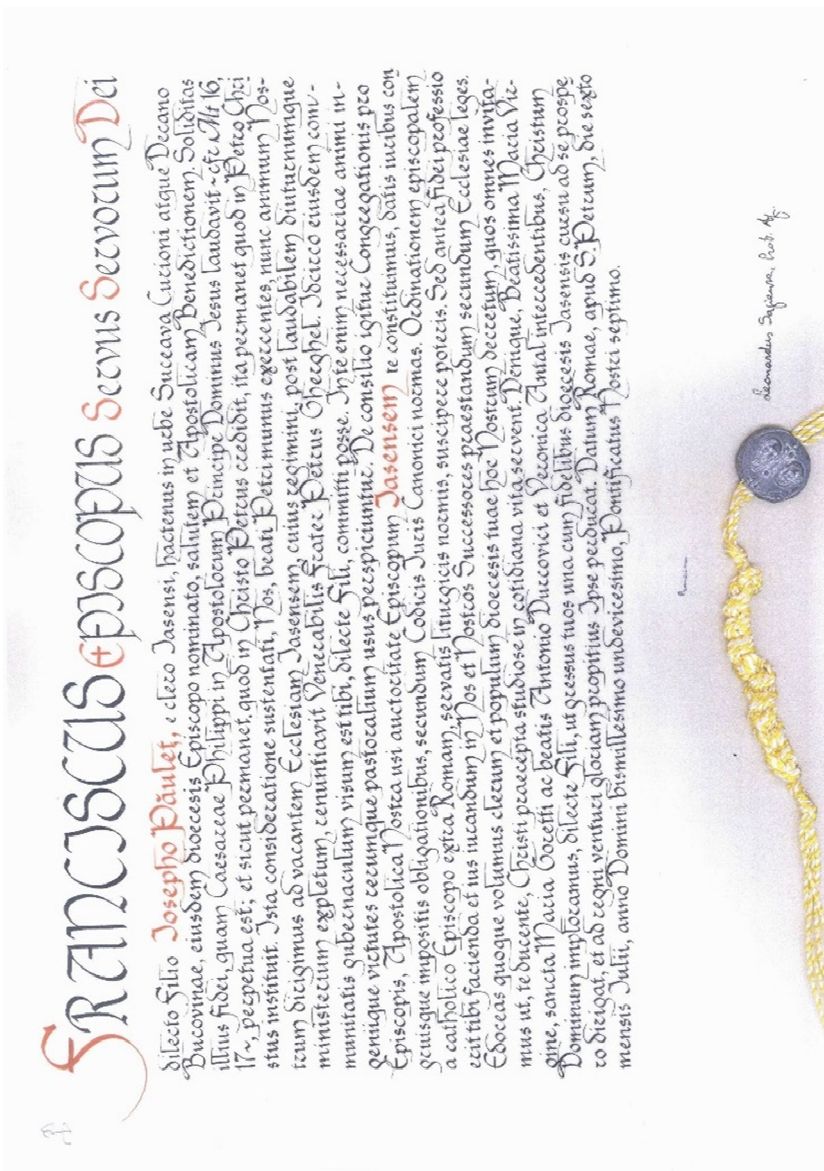 FRANCISCUS EPISCOPUS Servus Servorum Dei
dilecto Filio Josepho Păuleţ, e clero Jasensi, hactenus in urbe Suceava Curioni atque Decano
Bucovinae, eiusdem dioecesis Episcopo nominato, salutem et Apostolicam Benedictionem. Soliditas
illius fidei, quam Caesareae Philippi in Apostolorum Principe Dominus Jesus laudavit ~ cfr Mt 16,
17 ~, perpetua est; et sicut permanet, quod in Christo Petrus credidit, ita permanet quod in Petro Chri
stus instituit. Ista consideratione sustentati, Nos, beati Petri munus exercentes, nunc animum Nos-
trum dirigimus ad vacantem Ecclesiam Jasensem, cuius regimini, post laudabilem diuturnumque
ministerium expletum, renuntiavit Venerabilis Frater Petrus Gherghel. Idcirco eiusdem com-
munitatis gubernaculum visum est tibi, dilecte Fili, committi posse. In te enim necessariae animi in-
geniique virtutes rerumque pastoralium usus perspiciuntur. De consilio igitur Congregationis pro
Episcopis, Apostolica Nostra usi auctoritate Episcopum Jasensem te constituimus, datis iuribus con
gruisque impositis obligationibus, secundum Codicis Juris Canonici normas. Ordinationem episcopalem
a catholico Episcopo extra Romam, servatis liturgicis normis, suscipere poteris. Sed antea fidei professio
erit tibi facienda et ius iurandum in Nos et Nostros Successores praestandum secundum Ecclesiae leges.
Edoceas quoque volumus clerum et populum dioecesis tuae hoc Nostrum decretum, quos omnes invita-
mus ut, te ducente, Christi praecepta studiose in cotidiana vita servent. Denique, Beatissima Maria Vir-
gine, sancta Maria Goretti ac beatis Antonio Durcovici et Veronica Antal intercedentibus, Christum
Dominum imploramus, dilecte Fili, ut gressus tuos una cum fidelibus dioecesis Jasensis cursu ad se prospe
ro dirigat, et ad regni venturi gloriam propitius Ipse perducat. Datum Romae, apud S. Petrum, die sexto
mensis Julii, anno Domini bismillesimo undevicesimo, Pontificatus Nostri septimo.
Leonardus Sapienza, Prot. Ap.